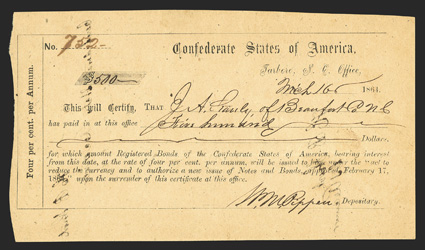 Four per cent. per Annum.
No. 752
Confederate States of America,
Tarboro, N. C. Office,
Mch 16 1864.
$500
This will Certify, THAT J. A. of Beaufort Co N C
has paid in at this office Five hundred
Dollars,
for which amount Registered Bonds of the Confederate States of America, bearing interest
from this date, at the rate of four per cent. per annum, will be issued to under the "act to
reduce the currency and to authorize a new issue of Notes and Bonds, approved February 17,
1864," upon the surrender of this certificate at this office.
Wm Pippen Depositary.